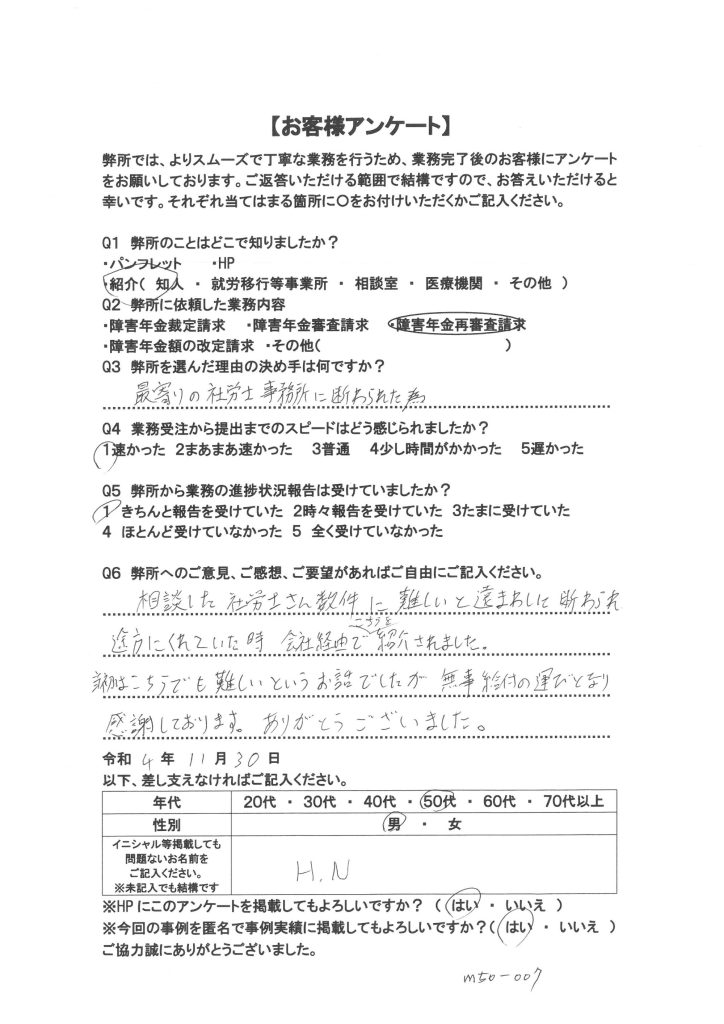 【お客様アンケート】
弊所では、よりスムーズで丁寧な業務を行うため、業務完了後のお客様にアンケート
をお願いしております。ご返答いただける範囲で結構ですので、お答えいただけると
幸いです。それぞれ当てはまる箇所に〇をお付けいただくかご記入ください。
Q1 弊所のことはどこで知りましたか？
・パンフレット ・HP
・紹介（ 知人 ・ 就労移行等事業所 ・ 相談室 ・ 医療機関 ・ その他 ）
Q2 弊所に依頼した業務内容
・障害年金裁定請求 ・障害年金審査請求 ・障害年金再審査請求
・障害年金額の改定請求 ・その他（ ）
Q3 弊所を選んだ理由の決め手は何ですか？
最寄りの社労士事務所に断わられた為
Q4 業務受注から提出までのスピードはどう感じられましたか？
1速かった 2まあまあ速かった 3普通 4少し時間がかかった 5遅かった
Q5 弊所から業務の進捗状況報告は受けていましたか？
1 きちんと報告を受けていた 2時々報告を受けていた 3たまに受けていた
4 ほとんど受けていなかった 5 全く受けていなかった
Q6 弊所へのご意見、ご感想、ご要望があればご自由にご記入ください。
相談した社労士さん数件に難しいと遠まわしに断わられ
途方にくれていた時 会社経由でこちらを紹介されました。
初めはこちらでも難しいというお話でしたが 無事給付の運びとなり
感謝しております。ありがとうございました。
令和 4 年 11 月 30 日
以下、差し支えなければご記入ください。
年代 20代 ・ 30代 ・ 40代 ・ 50代 ・ 60代 ・ 70代以上
性別 男 ・ 女
イニシャル等掲載しても
問題ないお名前を
ご記入ください。
※未記入でも結構です
H.N
※HPにこのアンケートを掲載してもよろしいですか？（ はい ・ いいえ ）
※今回の事例を匿名で事例実績に掲載してもよろしいですか？（ はい ・ いいえ ）
ご協力誠にありがとうございました。
m50-007